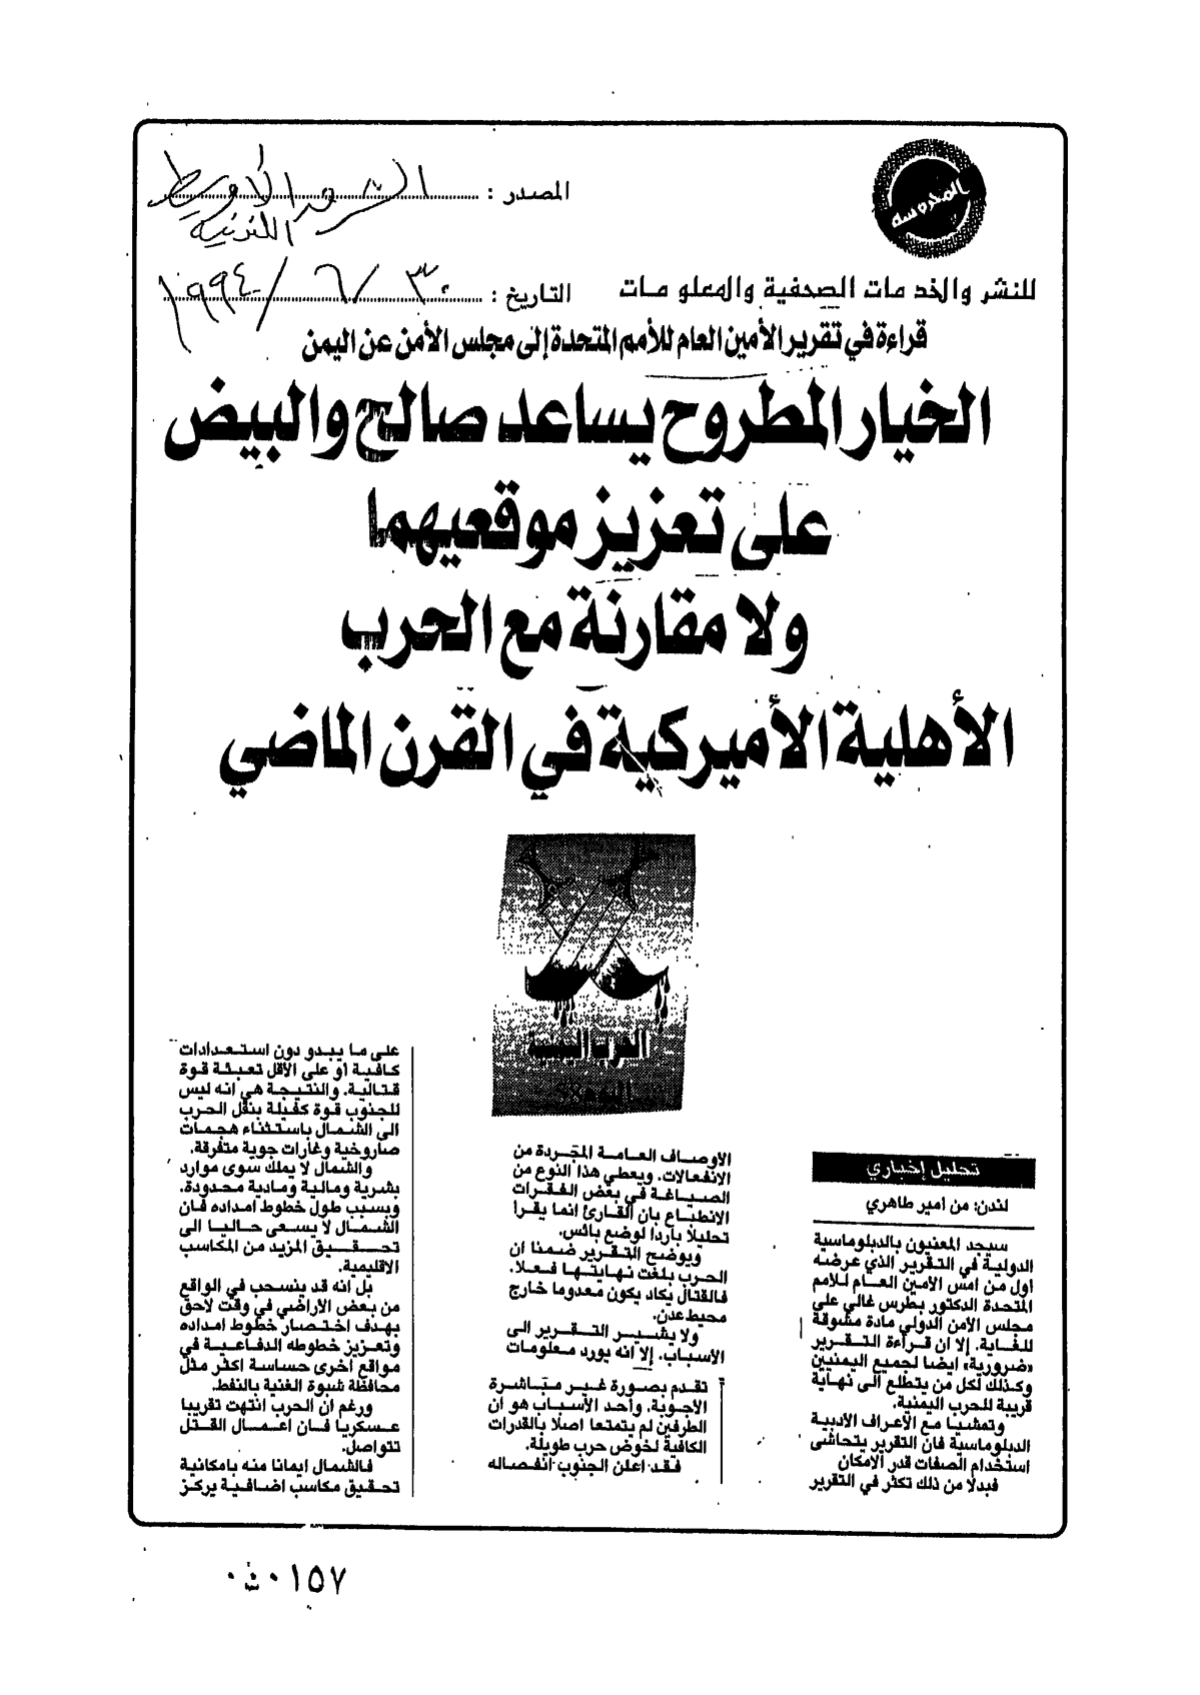 المحروسه
المصدر :
الشرق الأوسط
اللندنية
للنشر والخدمات الصحفية والمعلومات
التاريخ : ٣٠ / ٦ / ١٩٩٤
قراءة في تقرير الأمين العام للأمم المتحدة إلى مجلس الأمن عن اليمن
الخيار المطروح يساعد صالح والبيض
على تعزيز موقعيهما
ولا مقارنة مع الحرب
الأهلية الأميركية في القرن الماضي
الحرب اليمنية
تحليل إخباري
لندن: من امير طاهري
سيجد المعنيون بالدبلوماسية
الدولية في التقرير الذي عرضه
أول من امس الامين العام للامم
المتحدة الدكتور بطرس غالي على
مجلس الامن الدولي مادة مشوقة
للغاية. إلا ان قراءة التقرير
«ضرورية» ايضا لجميع اليمنيين
وكذلك لكل من يتطلع الى نهاية
قريبة للحرب اليمنية.
وتمشيا مع الأعراف الأدبية
الدبلوماسية فان التقرير يتحاشى
استخدام الصفات قدر الامكان
فبدلا من ذلك تكثر في التقرير
الاوصاف العامة المجردة من
الانفعالات. ويعطي هذا النوع من
الصياغة في بعض الفقرات
الانطباع بان القارئ انما يقرأ
تحليلا باردا لوضع بائس.
ويوضح التقرير ضمنا ان
الحرب بلغت نهايتها فعلا.
فالقتال يكاد يكون معدوما خارج
محيط عدن.
ولا يشير التقرير الى
الأسباب. إلا انه يورد معلومات
تقدم بصورة غير مباشرة
الاجوبة. وأحد الأسباب هو ان
الطرفين لم يتمتعا اصلا بالقدرات
الكافية لخوض حرب طويلة.
فقد اعلن الجنوب انفصاله
على ما يبدو دون استعدادات
كافية او على الاقل تعبئة قوة
قتالية. والنتيجة هي انه ليس
للجنوب قوة كفيلة بنقل الحرب
الى الشمال باستثناء هجمات
صاروخية وغارات جوية متفرقة.
والشمال لا يملك سوى موارد
بشرية ومالية ومادية محدودة.
وبسبب طول خطوط امداده فان
الشمال لا يسعى حاليا الى
تحقيق المزيد من المكاسب
الاقليمية.
بل انه قد ينسحب في الواقع
من بعض الاراضي في وقت لاحق
بهدف اختصار خطوط امداده
وتعزيز خطوطه الدفاعية في
مواقع اخرى حساسة اكثر مثل
محافظة شبوة الغنية بالنفط.
ورغم ان الحرب انتهت تقريبا
عسكريا فان اعمال القتل
تتواصل.
فالشمال إيمانا منه بإمكانية
تحقيق مكاسب اضافية يركز